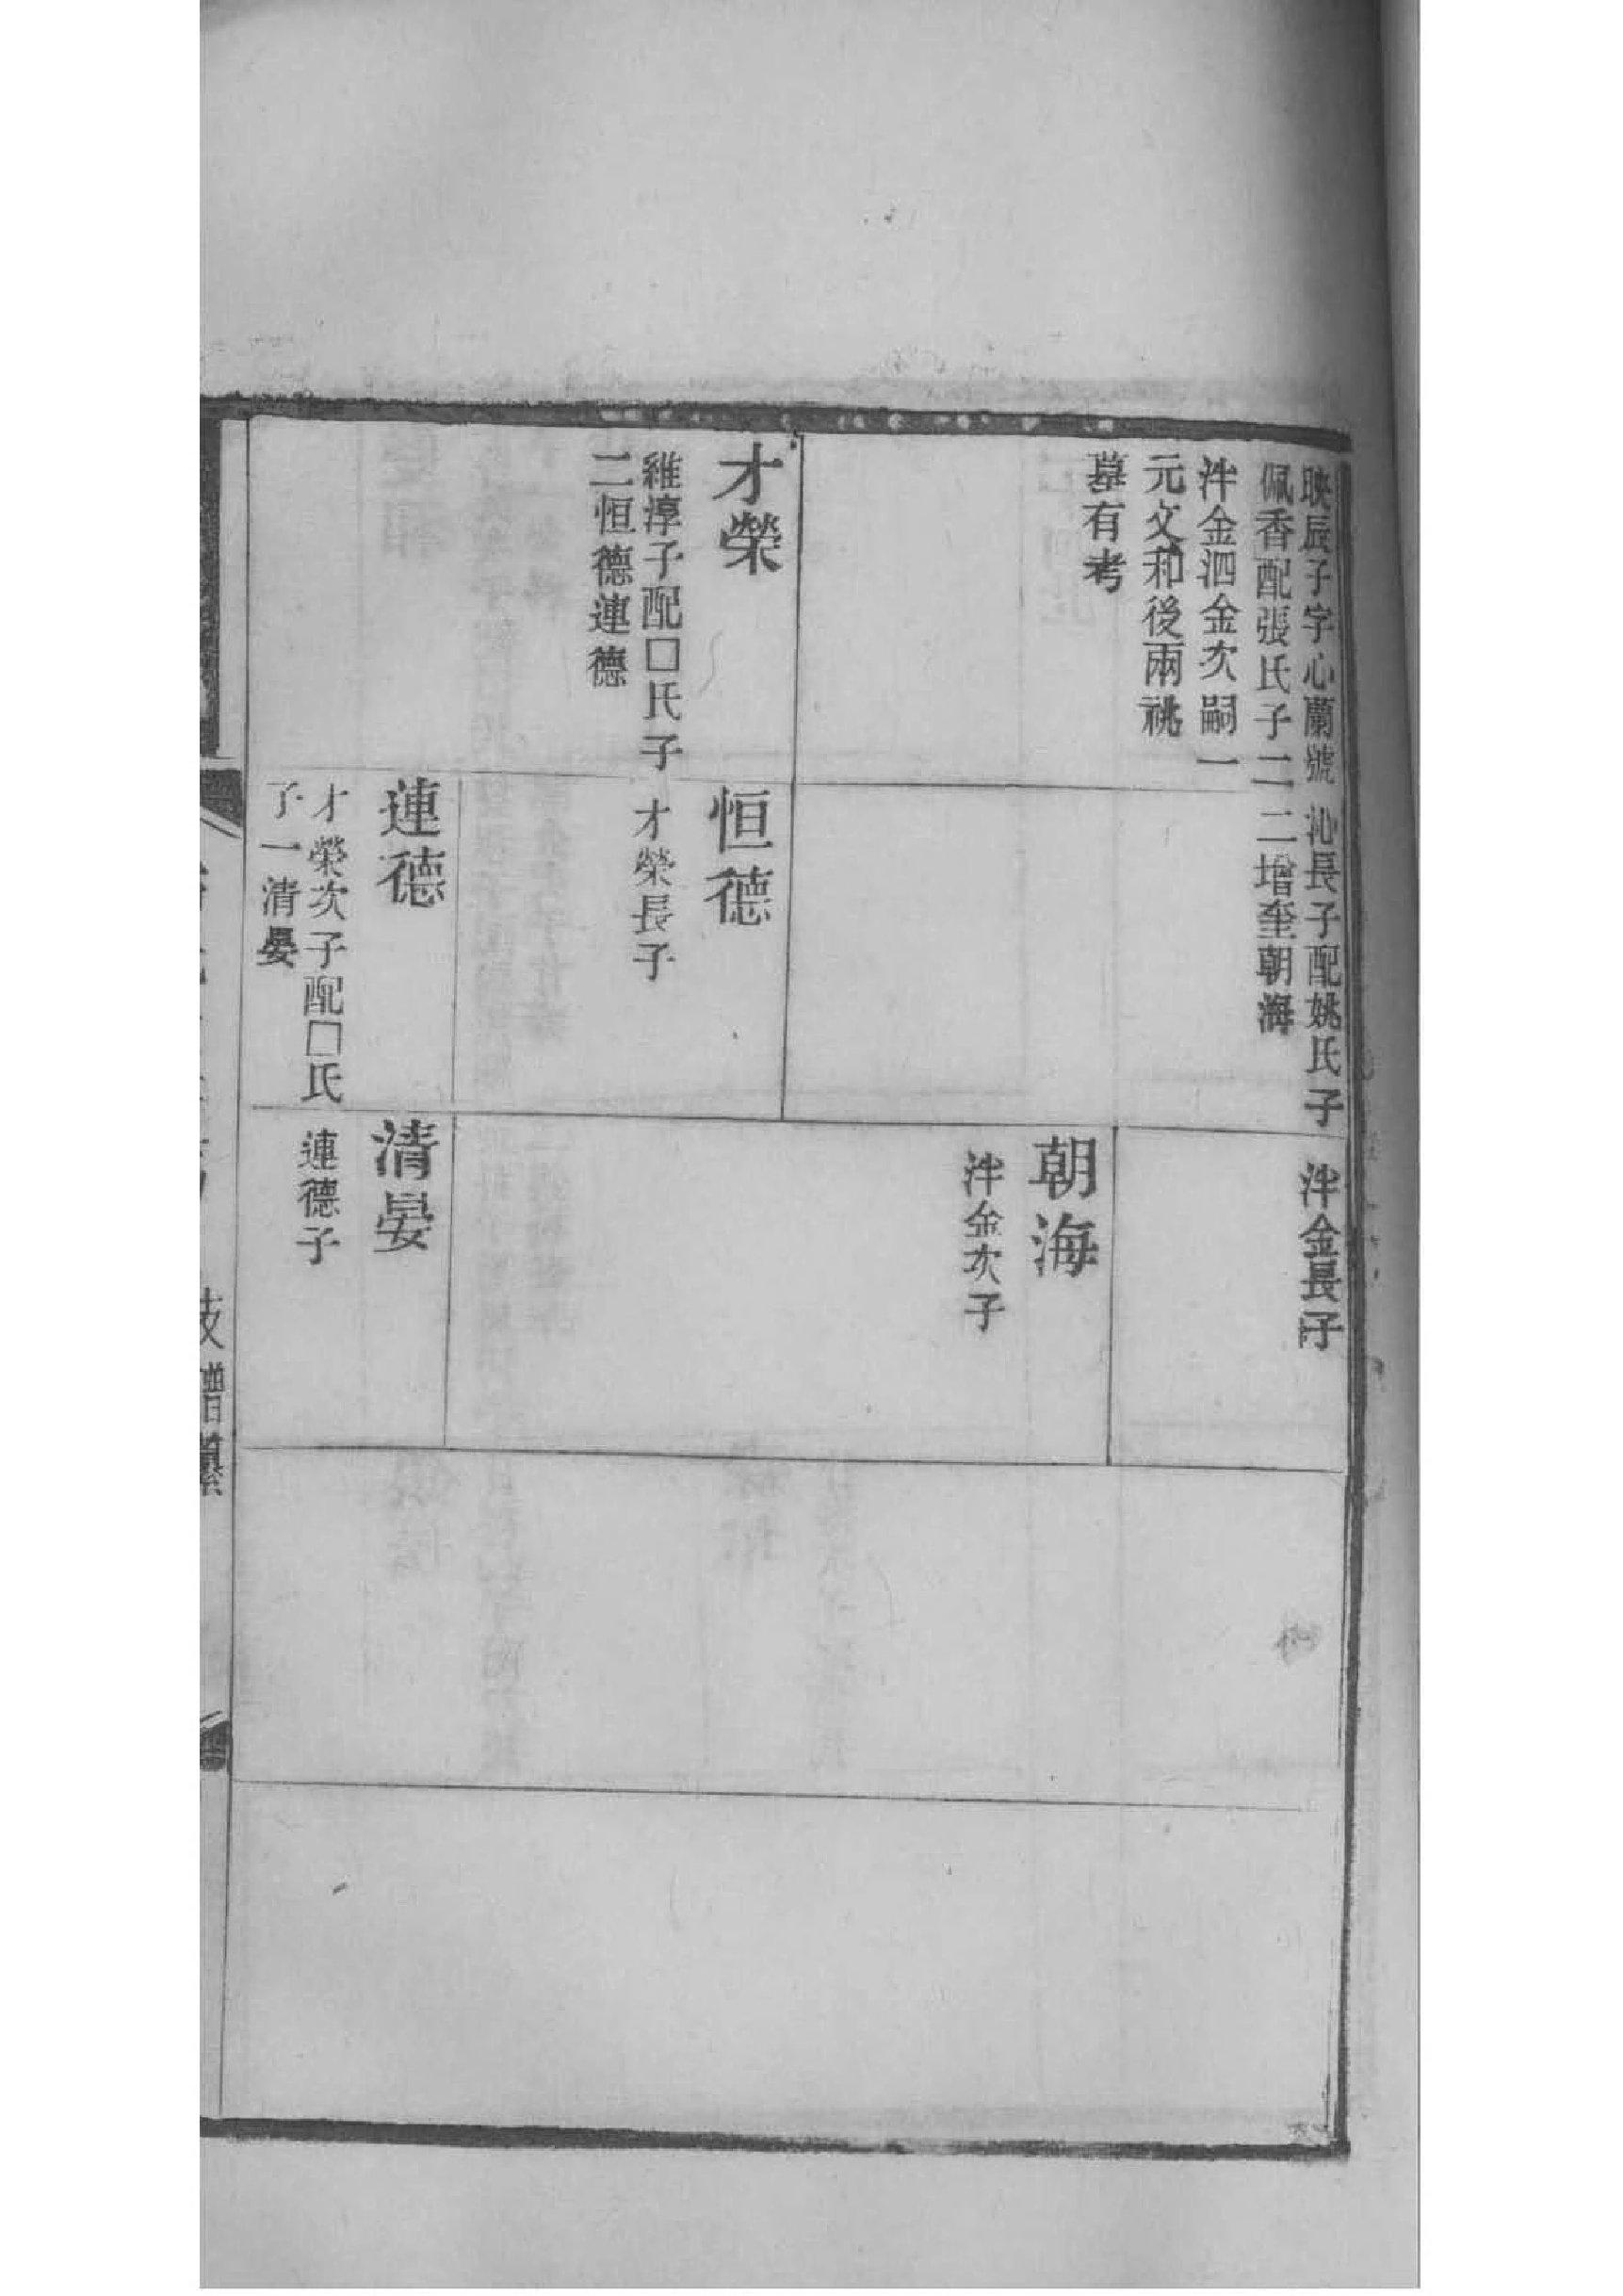 映辰子字心蘭號
佩香配張氏子二
泮金泗金次嗣一
元文和後兩祧
墓有考
才榮
維淳子配□氏子
二恒德連德
沁長子配姚氏子
二增奎朝海
恒德
才榮長子
連德
才榮次子配□氏
子一清晏
泮金長子
朝海
泮金次子
清晏
連德子
支譜纂